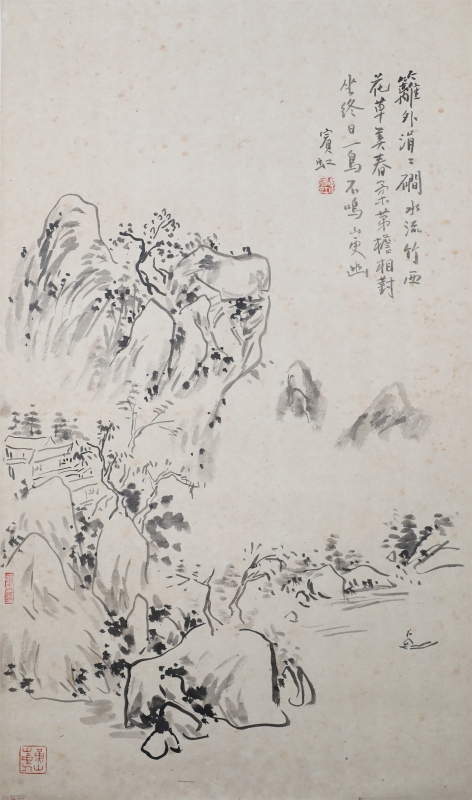 籬外涓〻磵水流竹西
花草美春柔茅檐相對
坐終日一鳥不鳴山更幽
賓虹
黃山